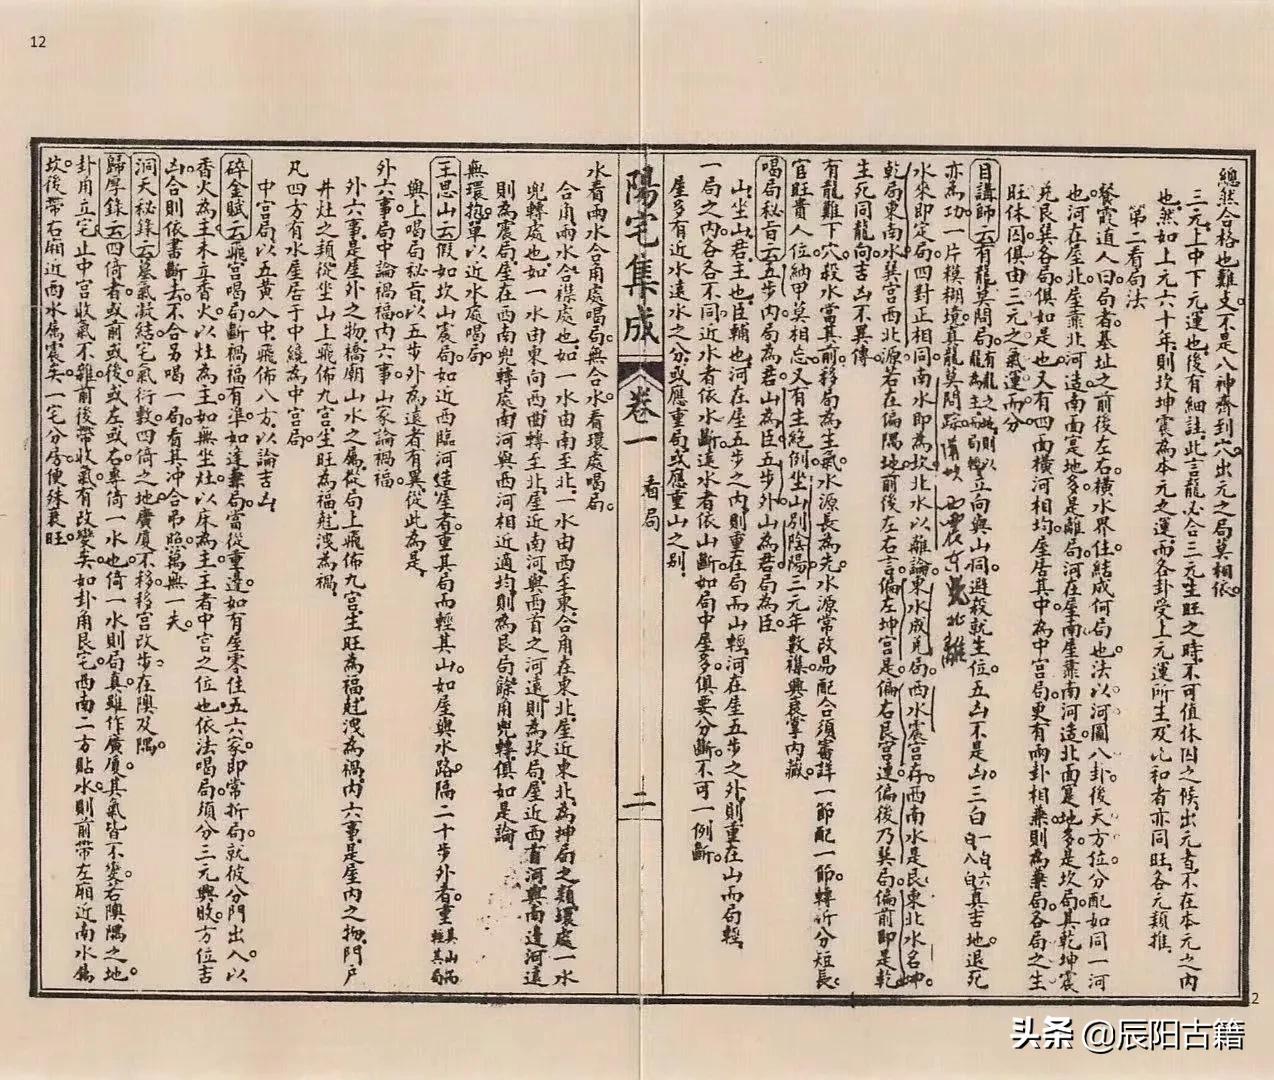 12
總然合格也難支。不是八神齊到穴。出元之局莫相依。
三元上中下元運也。後有細註。此言龍必合三元生旺之時。不可值休囚之候。出元者。不在本元之內
也。然如上元六十年。則坎坤震為本元之運。而各卦受上元運所生。及比和者。亦同旺。各元類推。
第二看局法
餐霞道人曰。局者基址之前後左右。橫水界住。結成何局也。法以河圖八卦。後天方位分配。如同一河
也。河在屋北。屋靠北河。造南面定地。多是離局。河在屋南。屋靠南河。造北面定地。多是坎局。其乾坤震
兌艮巽各局。俱如是也。又有四面橫河相均。屋居其中。為中宮局。更有兩卦相兼。則為兼局。各局之生
旺休囚。俱由三元之氣運而分。
目講師云。有龍莫問局。有龍之地。則以龍為主。而局輕 立向與山同。避殺就生位。五凶不是凶。三白一白六白八白 真吉地。退死
亦為功。一片模糊境。真龍莫問踪。
水來即定局。四對正相同。南水即為坎。北水以離論。東水成兌局。西水震宮存。西南水是艮。東北水名坤。
乾局東南水。巽宮西北源。若在偏隅地。前後左右言。偏左坤宮是。偏右艮宮連。偏後乃巽局。偏前即是乾。
生死同龍向。吉凶不異傳。
有龍難下穴。殺水當其前。移局為生氣。水源長為先。水源常改易。配合須審詳。一節配一節。轉折分短長。
官旺貴人位。納甲莫相忘。又有生絕例。坐山別陰陽。三元年數襍。興衰掌內藏。
喝局秘旨云。五步內局為君。山為臣。五步外山為君。局為臣。
山坐山。君主也。臣輔也。河在屋五步之內。則重在局而山輕。河在屋五步之外。則重在山而局輕。
一局之內。各各不同。近水者依水斷。遠水者依山斷。如局中屋多。俱要分斷。不可一例斷。
屋多有近水遠水之分。或應重局。或應重山之別。
陽宅集成 卷一 看局 二
水看兩水合角處喝局。無合水。看環處喝局。
合角。兩水合襟處也。如一水由南至北。一水由西至東。合角在東北。屋近東北。為坤局之類。環處一水
兜轉處也。如一水由東向西。曲轉至北。屋近南河。與西首之河遠。則為坎局。屋近西首河。與南邊河遠
則為震局。屋在西南兜轉處。南河與西河相近適均。則為艮局。餘用兜轉。俱如是論。
無環抱。單以近水處喝局。
王思山云。假如坎山震局。如近西臨河造屋者。重其局而輕其山。如屋與水路隔二十步外者。重其山而輕其局
與上喝局秘旨。以五步外為遠者有異。從此為是。
外六事局中論禍福。內六事山家論禍福。
外六事。是屋外之物。橋廟山水之屬。從局上飛佈九宮。生旺為福。尅洩為禍。內六事。是屋內之物。門戶
井灶之類。從坐山上飛佈九宮。生旺為福。尅洩為禍。
凡四方有水。屋居于中。總為中宮局。
中宮局。以五黃入中。飛佈八方。以論吉凶
碎金賦云。飛宮喝局斷禍福。有準如逢兼局。當從重邊。如有屋零住五六家。即常折局。就彼分門出入。以
香火為主。未立香火。以灶為主。如無坐灶。以床為主。主者中宮之位也。依法喝局。須分三元興敗。方位吉
凶。合則依書斷去。不合另喝一局。看其冲合吊照。萬無一失。
洞天秘錄云。墓氣凝結。宅氣衍敷。四倚之地。廣厦不移。移宮改步。在隩及隅。
歸厚錄云。四倚者。或前或後。或左或右。專倚一水也。倚一水則局真。雖作廣厦。其氣皆不變。若隩隅之地
卦用立宅。止中宮收氣不雜。前後帶收。氣有改變矣。如卦用艮宅。西南二方貼水。則前帶左廂近南水屬
坎。後帶右廂近西水屬震矣。一宅分房。便殊衰旺。
2
头条 @辰阳古籍